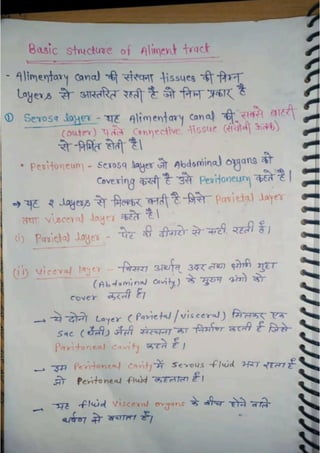 Basic structure of Aliment tract
- Alimentary Canal की संरचना tissues की निम्न
Layers से आस्तरित रहती है जो निम्न प्रकार है
① Serosa layer - यह Alimentary Canal की सबसे बाहरी
(outer) पतले Connective tissue (संयोजी ऊतक)
से निर्मित होती है।
* Peritoneum - Serosa layer जो Abdominal organs को
Covering करती है उसे Peritoneum कहते है।
→ यह 2 layers से मिलकर बनती है जिसे Parietal layer
तथा Visceral layer कहते है।
(i) Parietal layer - पेट की दीवारों से सटी रहती है।
(ii) Visceral layer - विसरा अर्थात् उदर तथा श्रोणी गुहा
(Abdominal Cavity) के मुख्य अंगो को
cover करती है।
→ ये दोनो Layer (Parietal/visceral) मिलकर एक
Sac (थैली) जैसी संरचना का निर्माण करती है जिसे
Paritoneal Cavity कहते है।
→ इस Peritoneal Cavity में Serous fluid भरा रहता है
जो Peritoneal fluid कहलाता है।
→ यह fluid Visceral organs के बीच होने वाले
घर्षण से बचाता है।